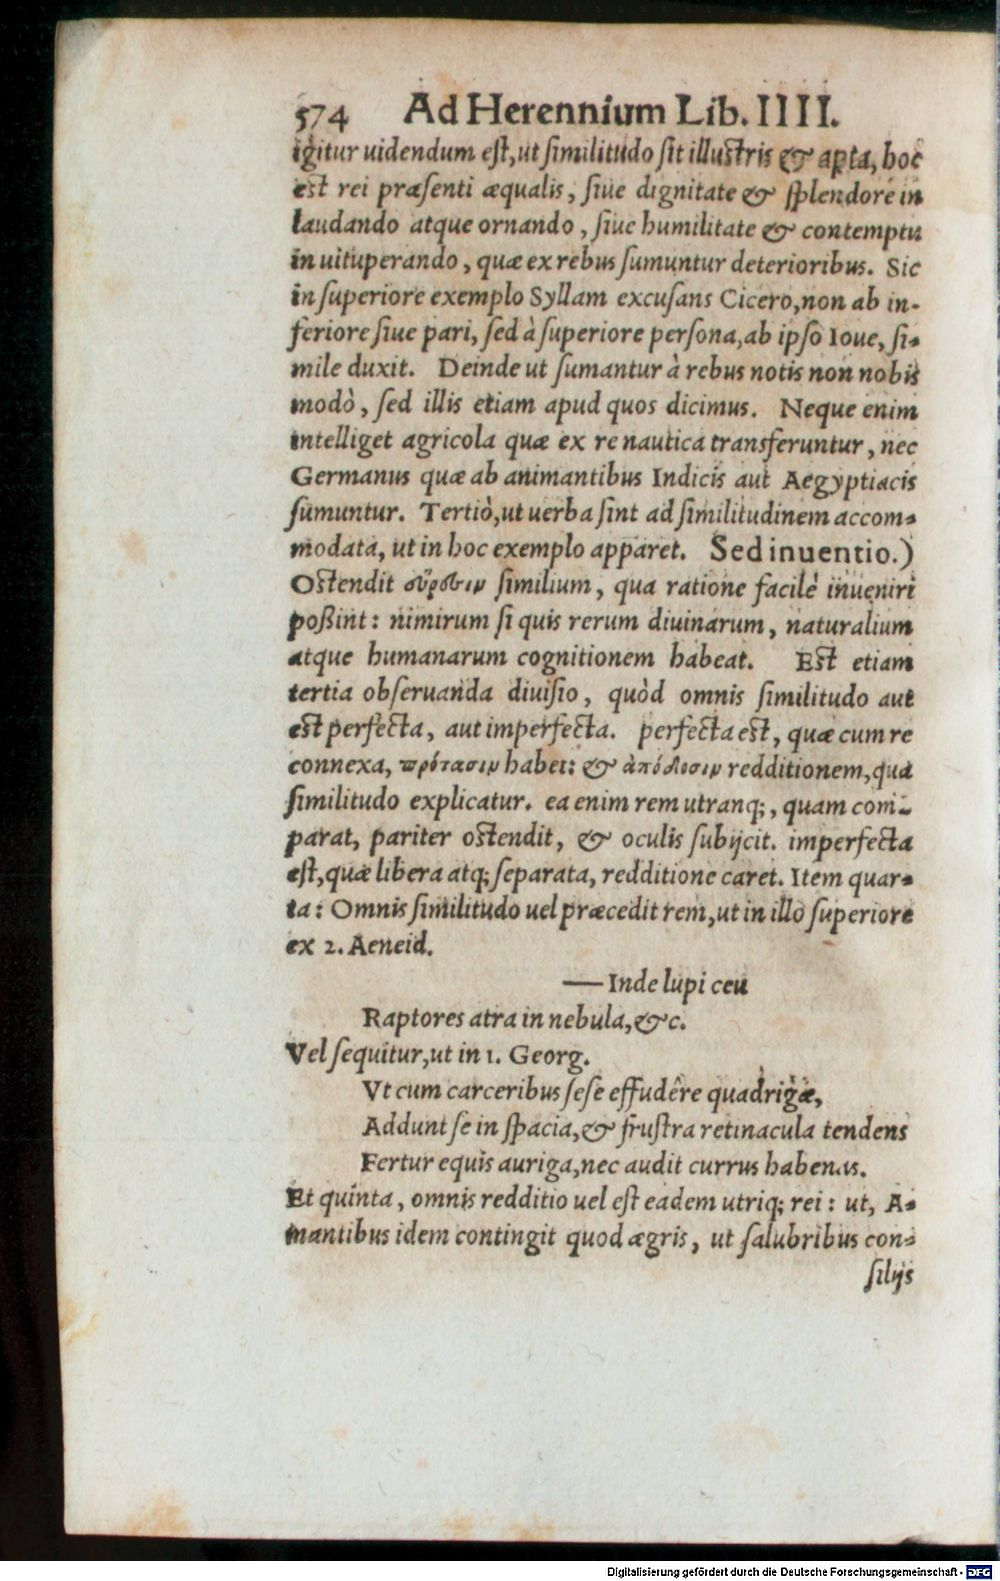 574 Ad Herennium Lib. IIII.
igitur uidendum est, ut similitudo sit illustris & apta, hoc
est rei præsenti æqualis, siue dignitate & splendore in
laudando atque ornando, siue humilitate & contemptu
in uituperando, quæ ex rebus sumuntur deterioribus. Sic
in superiore exemplo Syllam excusans Cicero, non ab in-
feriore siue pari, sed à superiore persona, ab ipso Ioue, si-
mile duxit. Deinde ut sumantur à rebus notis non nobis
modò, sed illis etiam apud quos dicimus. Neque enim
intelliget agricola quæ ex re nautica transferuntur, nec
Germanus quæ ab animantibus Indicis aut Aegyptiacis
sumuntur. Tertiò, ut uerba sint ad similitudinem accom-
modata, ut in hoc exemplo apparet. Sed inuentio.)
Ostendit εὕρεσιν similium, qua ratione facilè inueniri
poßint: nimirum si quis rerum diuinarum, naturalium
atque humanarum cognitionem habeat. Est etiam
tertia obseruanda diuisio, quòd omnis similitudo aut
est perfecta, aut imperfecta. perfecta est, quæ cum re
connexa, πρότασιν habet: & ἀπόδοσιν redditionem, qua
similitudo explicatur. ea enim rem utranq;, quam com-
parat, pariter ostendit, & oculis subijcit. imperfecta
est, quæ libera atq; separata, redditione caret. Item quar-
ta: Omnis similitudo uel præcedit rem, ut in illo superiore
ex 2. Aeneid.
— Inde lupi ceu
Raptores atra in nebula, &c.
Vel sequitur, ut in 1. Georg.
Vt cum carceribus sese effudêre quadrigæ,
Addunt se in spacia, & frustra retinacula tendens
Fertur equis auriga, nec audit currus habenas.
Et quinta, omnis redditio uel est eadem utriq; rei: ut, A-
mantibus idem contingit quod ægris, ut salubribus con-
silijs
Digitalisierung gefördert durch die Deutsche Forschungsgemeinschaft - DFG